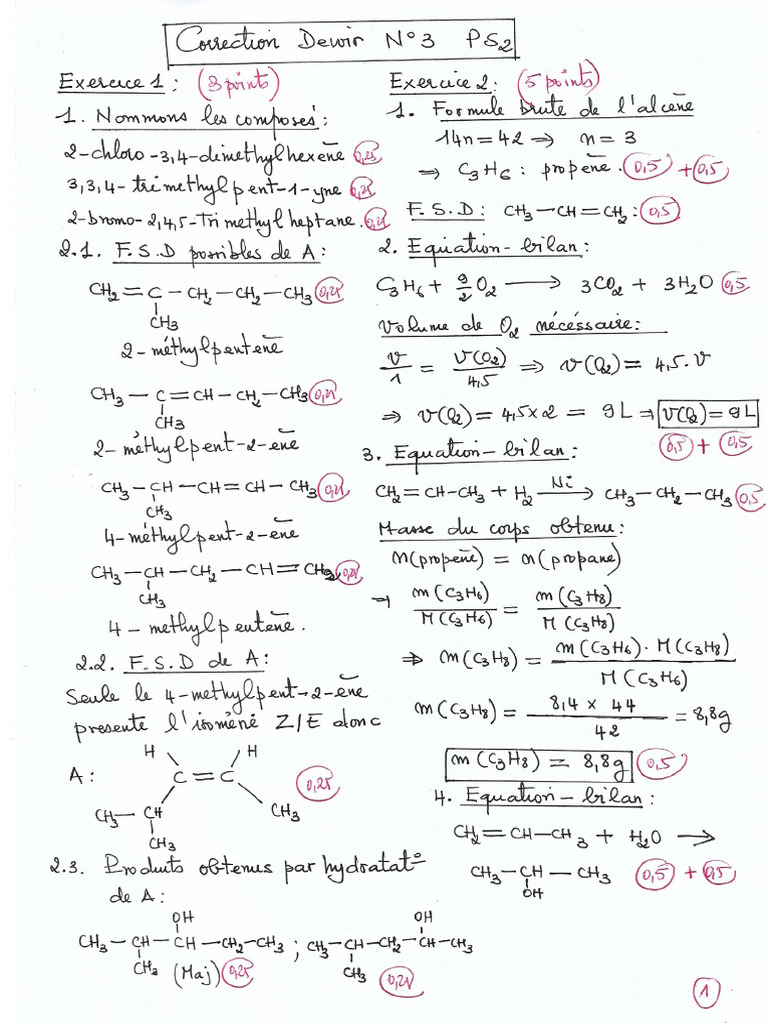 Correction Devoir N°3 PS2
Exercice 1 : (3 points)
1. Nommons les composés :
2-chloro-3,4-dimethylhexène 0,25
3,3,4-trimethylpent-1-yne 0,25
2-bromo-2,4,5-trimethylheptane. 0,25
2.1. F.S.D possibles de A :
CH2=C-CH2-CH2-CH3 0,25
CH3
2-méthylpentène
CH3-C=CH-CH2-CH3 0,25
CH3
2-méthylpent-2-ène
CH3-CH-CH=CH-CH3 0,25
CH3
4-méthylpent-2-ène
CH3-CH-CH2-CH=CH2 0,25
CH3
4-methylpentène.
2.2. F.S.D de A :
Seule le 4-methylpent-2-ène
presente l'isomérié Z/E donc
H H
A : C=C 0,25
CH3-CH CH3
CH3
2.3. Produits obtenus par hydratat°
de A :
OH OH
CH3-CH-CH-CH2-CH3 ; CH3-CH-CH2-CH-CH3
CH3 (Maj) 0,25 CH3 0,25
Exercice 2 : (5 points)
1. Formule brute de l'alcène
14n=42 ⇒ n=3
⇒ C3H6 : propène. 0,5 + 0,5
F.S.D : CH3-CH=CH2 : 0,5
2. Equation-bilan :
C3H6 + 9/2 O2 → 3CO2 + 3H2O 0,5
Volume de O2 nécéssaire :
V/1 = V(O2)/4,5 ⇒ V(O2) = 4,5.V
⇒ V(O2) = 4,5×2 = 9L ⇒ V(O2)=9L
0,5 + 0,5
3. Equation-bilan :
CH2=CH-CH3 + H2 Ni → CH3-CH2-CH3 0,5
Masse du corps obtenu :
n(propène) = n(propane)
→ m(C3H6)/M(C3H6) = m(C3H8)/M(C3H8)
⇒ m(C3H8) = m(C3H6).M(C3H8)/M(C3H6)
m(C3H8) = 8,4 × 44/42 = 8,8g
m(C3H8) = 8,8g 0,5
4. Equation-bilan :
CH2=CH-CH3 + H2O →
CH3-CH-CH3 0,5 + 0,5
OH
1